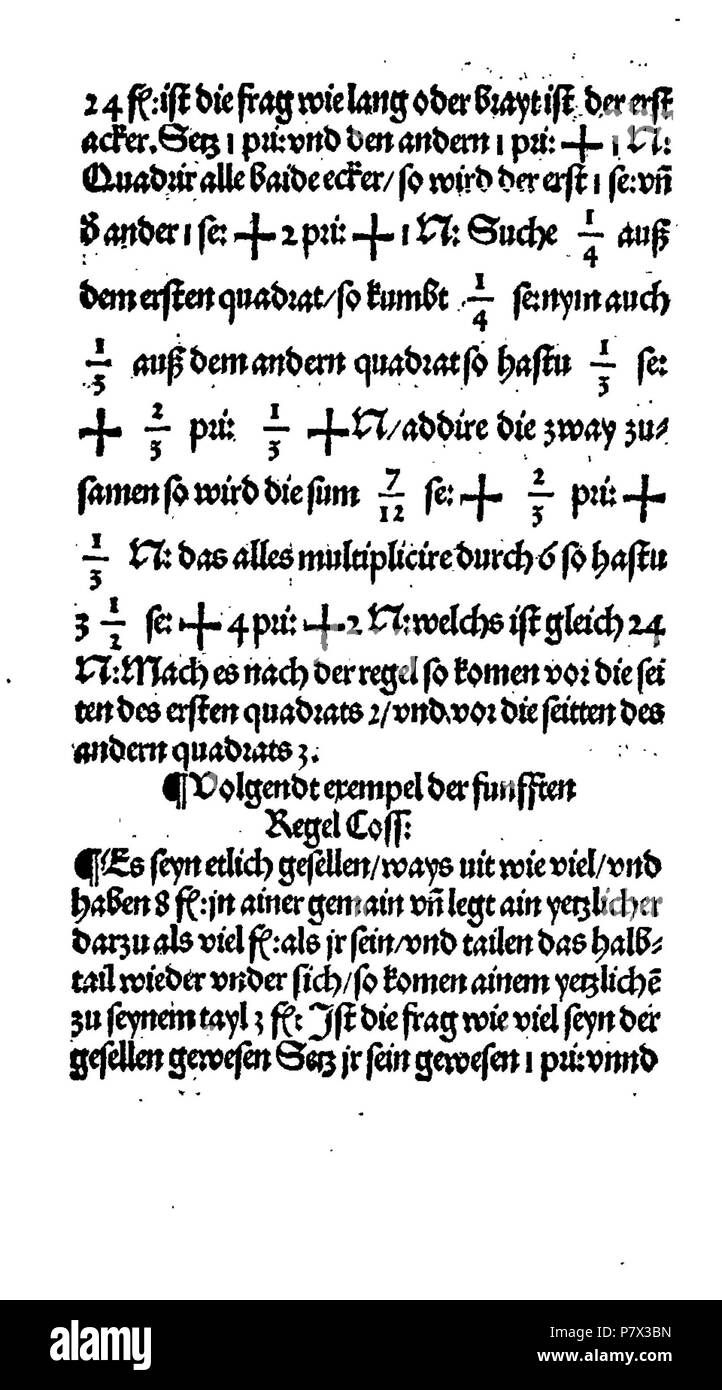 24 fl:ist die frag wie lang oder brayt ist der erst
acker. Setz 1 pri: vnd den andern 1 pri: + 1 N:
Quadrir alle baide ecker/ so wird der erst 1 se: vn̄
d̕ ander 1 se: + 2 pri: + 1 N: Suche 1/4 auß
dem ersten quadrat/ so kumbt 1/4 se: nym auch
1/3 auß dem andern quadrat so hastu 1/3 se:
+ 2/3 pri: 1/3 + N/ addire die zway zu⸗
samen so wird die sum 7/12 se: + 2/3 pri: +
1/3 N: das alles multiplicire durch 6 so hastu
3 1/2 se: + 4 pri: + 2 N: welchs ist gleich 24
N: Mach es nach der regel so komen vor die sei
ten des ersten quadrats 2/ vnd vor die seitten des
andern quadrats 3.
¶ Volgendt exempel der funfften
Regel Coss:
¶ Es seyn etlich gesellen/ ways nit wie viel/ vnd
haben 8 fl: jn ainer gemain vn̄ legt ain yetzlicher
darzu als viel fl: als jr sein/ vnd tailen das halb⸗
tail wieder vnder sich/ so komen ainem yetzlichē
zu seynem tayl 3 fl: Ist die frag wie viel seyn der
gesellen gewesen Setz jr sein gewesen 1 pri: vnnd
alamy
Image ID: P7X3BN
www.alamy.com